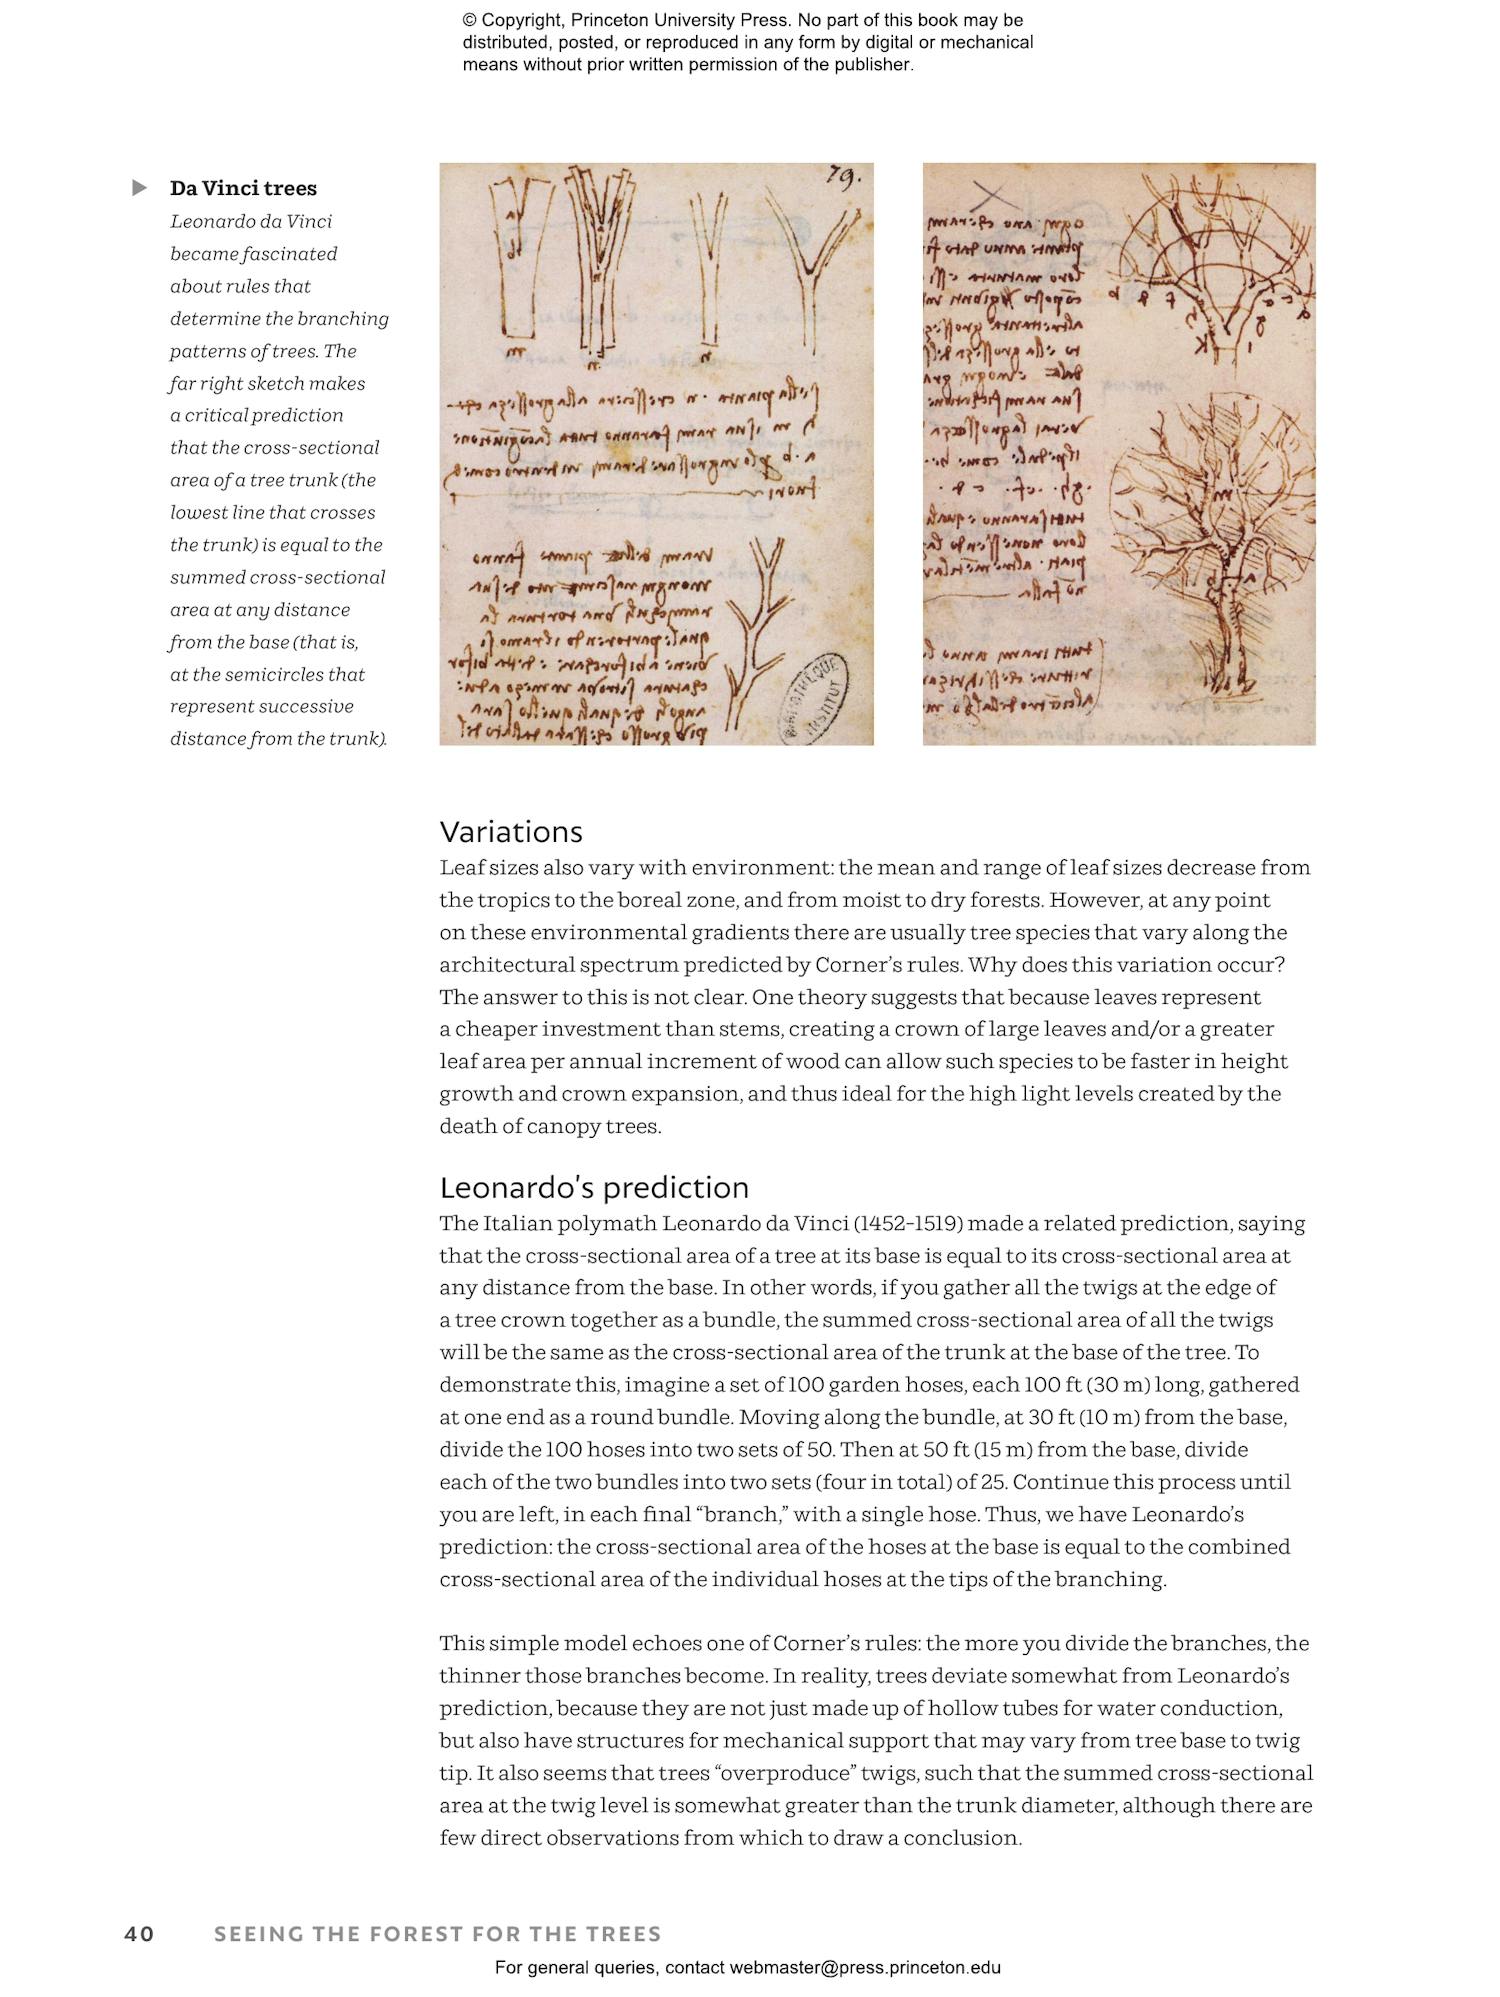 © Copyright, Princeton University Press. No part of this book may be
distributed, posted, or reproduced in any form by digital or mechanical
means without prior written permission of the publisher.
Da Vinci trees
Leonardo da Vinci
became fascinated
about rules that
determine the branching
patterns of trees. The
far right sketch makes
a critical prediction
that the cross-sectional
area of a tree trunk (the
lowest line that crosses
the trunk) is equal to the
summed cross-sectional
area at any distance
from the base (that is,
at the semicircles that
represent successive
distance from the trunk).
79.
BIBLIOTHEQUE
INSTITUT
Variations
Leaf sizes also vary with environment: the mean and range of leaf sizes decrease from
the tropics to the boreal zone, and from moist to dry forests. However, at any point
on these environmental gradients there are usually tree species that vary along the
architectural spectrum predicted by Corner’s rules. Why does this variation occur?
The answer to this is not clear. One theory suggests that because leaves represent
a cheaper investment than stems, creating a crown of large leaves and/or a greater
leaf area per annual increment of wood can allow such species to be faster in height
growth and crown expansion, and thus ideal for the high light levels created by the
death of canopy trees.
Leonardo’s prediction
The Italian polymath Leonardo da Vinci (1452–1519) made a related prediction, saying
that the cross-sectional area of a tree at its base is equal to its cross-sectional area at
any distance from the base. In other words, if you gather all the twigs at the edge of
a tree crown together as a bundle, the summed cross-sectional area of all the twigs
will be the same as the cross-sectional area of the trunk at the base of the tree. To
demonstrate this, imagine a set of 100 garden hoses, each 100 ft (30 m) long, gathered
at one end as a round bundle. Moving along the bundle, at 30 ft (10 m) from the base,
divide the 100 hoses into two sets of 50. Then at 50 ft (15 m) from the base, divide
each of the two bundles into two sets (four in total) of 25. Continue this process until
you are left, in each final “branch,” with a single hose. Thus, we have Leonardo’s
prediction: the cross-sectional area of the hoses at the base is equal to the combined
cross-sectional area of the individual hoses at the tips of the branching.
This simple model echoes one of Corner’s rules: the more you divide the branches, the
thinner those branches become. In reality, trees deviate somewhat from Leonardo’s
prediction, because they are not just made up of hollow tubes for water conduction,
but also have structures for mechanical support that may vary from tree base to twig
tip. It also seems that trees “overproduce” twigs, such that the summed cross-sectional
area at the twig level is somewhat greater than the trunk diameter, although there are
few direct observations from which to draw a conclusion.
40 SEEING THE FOREST FOR THE TREES
For general queries, contact webmaster@press.princeton.edu